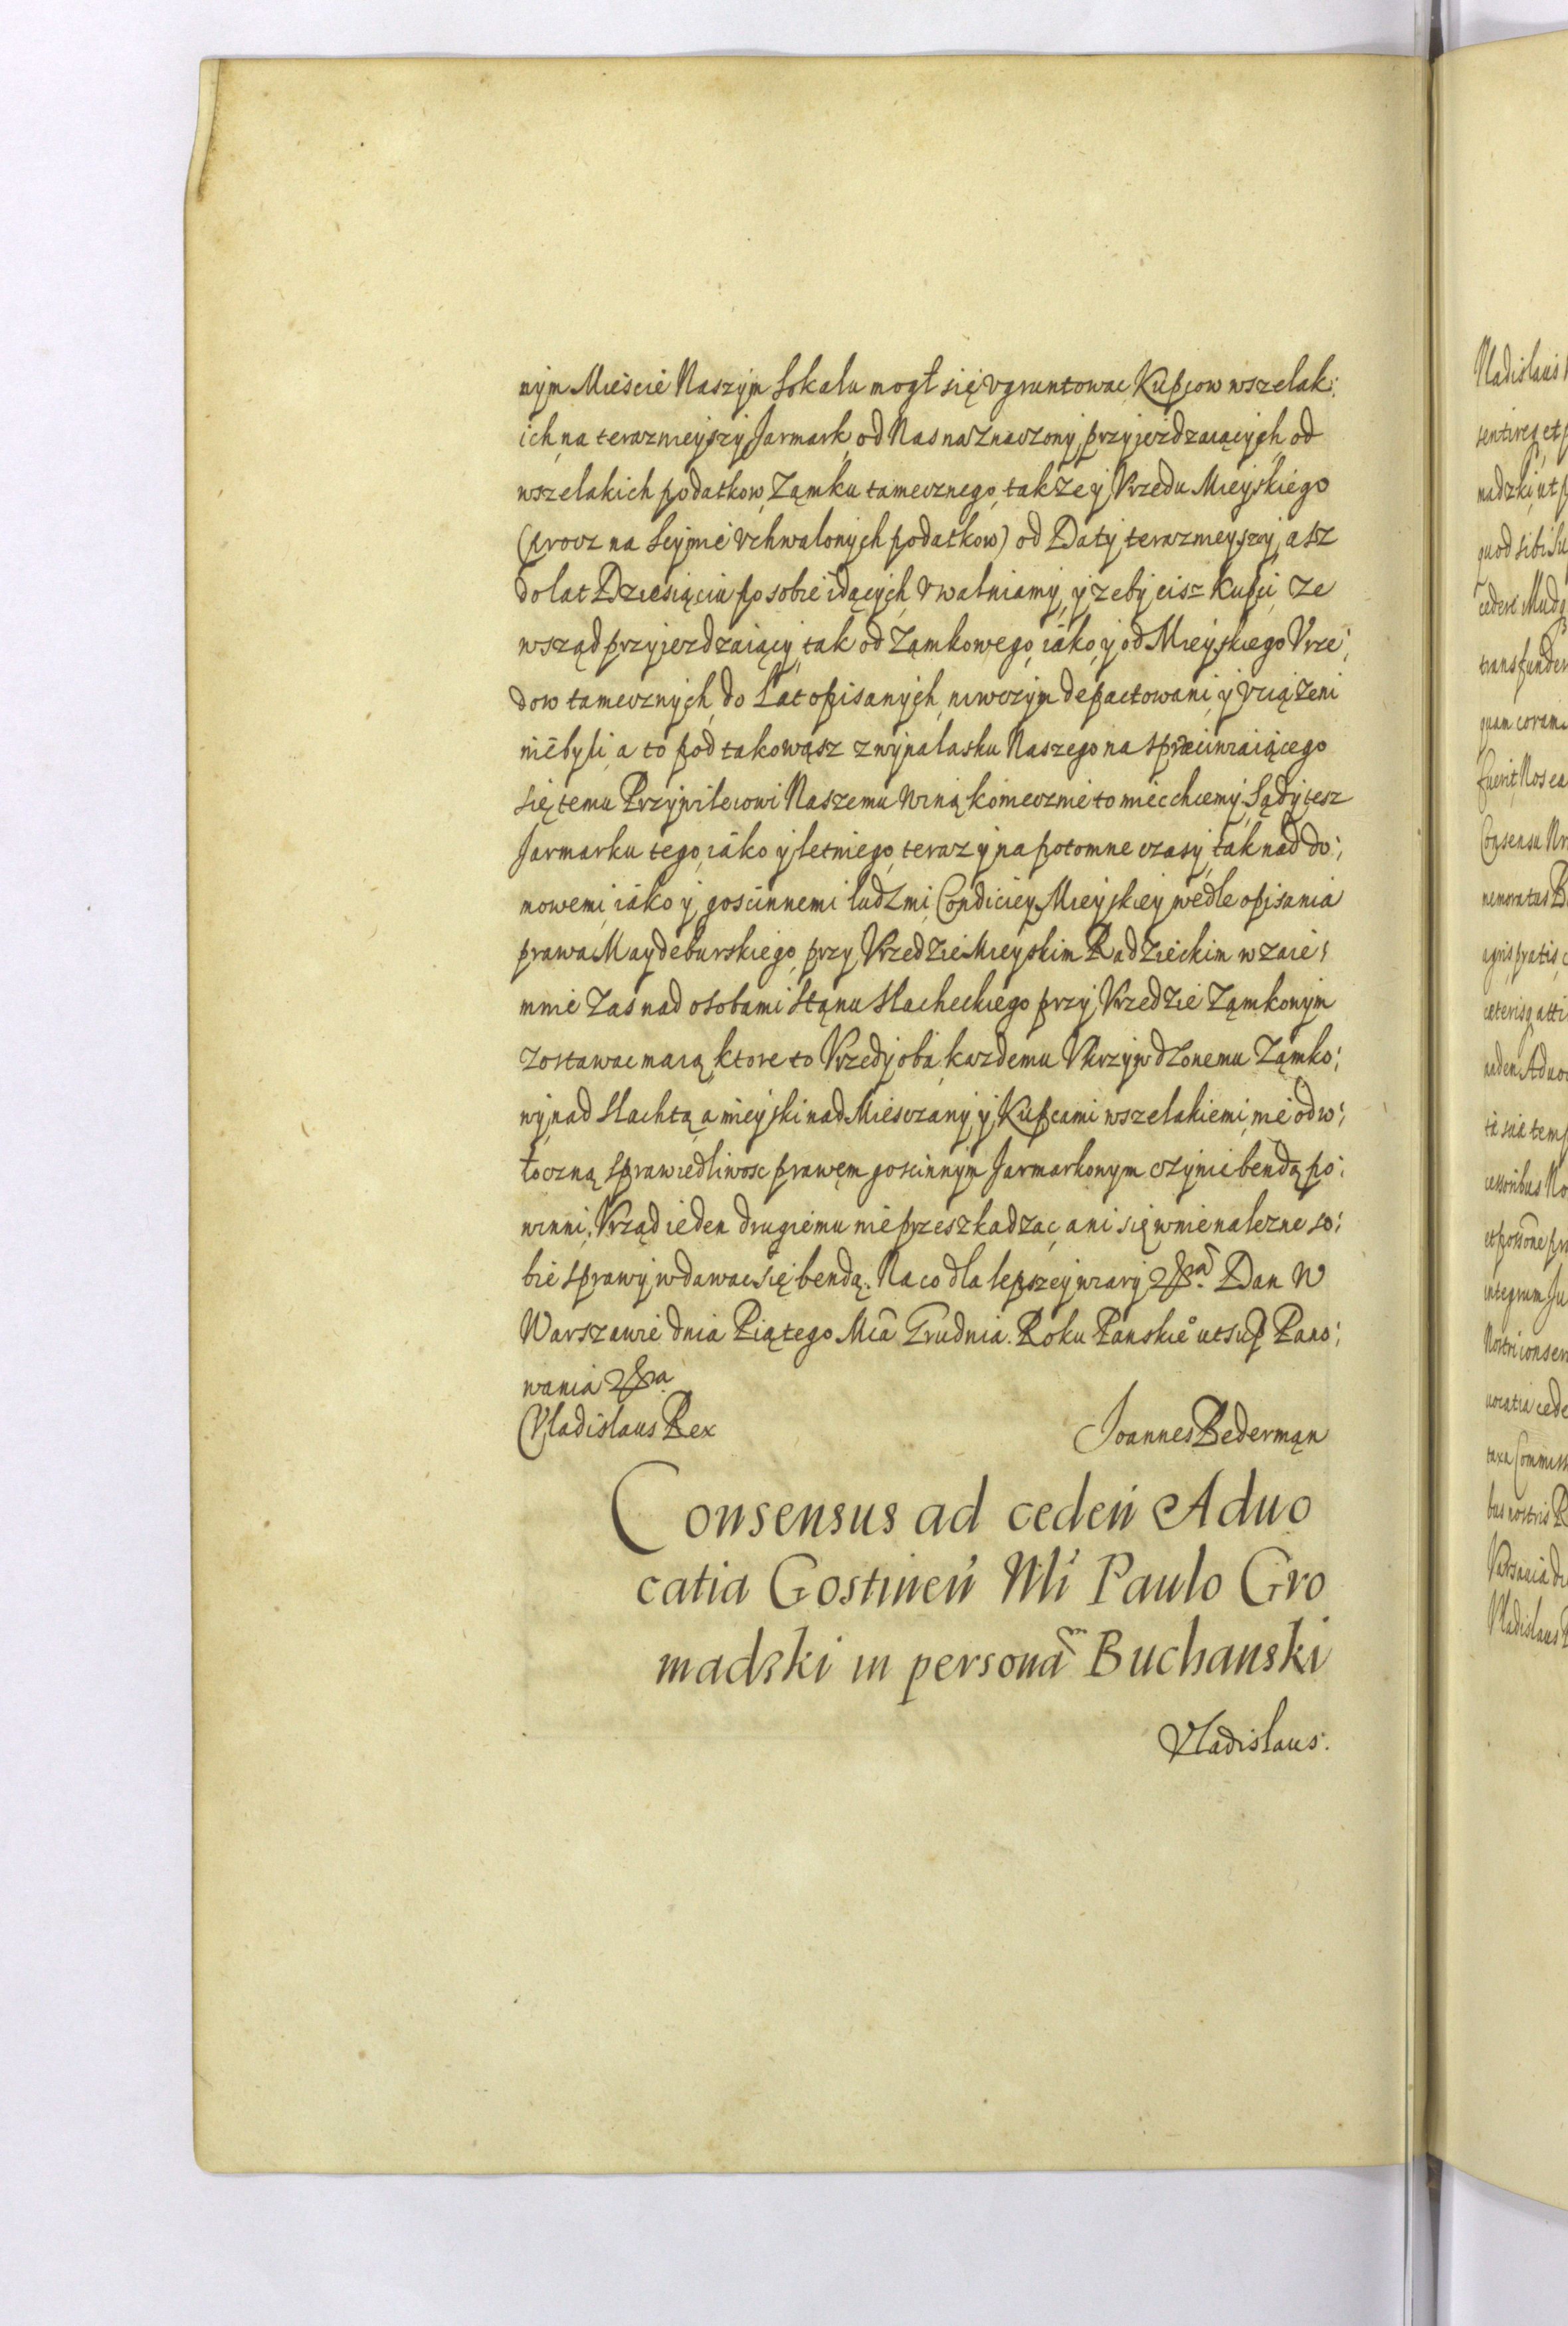 nym Mieście Naszym Sokalu mogł się vgruntowac, Kupcow wszelak:
ich, na terazmeyszy Jarmark, od Nas naznaczony, przyjezdzaiących, od
wszelakich podatkow, Zamku tamecznego, takze y Vrzedu Mieyskiego
(procz na Seymie vchwalonych podatkow) od Daty terazmeyszy, asz
do lat Dziesiąciu po sobie idących, vwalniamy, y zeby cisz Kupci, ze
wsząd przyjezdzaiący, tak od Zamkowego, iako, y od Mieyskiego Vrze:
dow tamecznych, do Lat opisanych, niwczym depactowani, y vciązeni
niebyli, a to pod takowąsz z wynalasku Naszego na sprzeciwiaiącego
się temu Przywileiowi Naszemu winą, koniecznie to miec chcemy, Sądy tesz
Jarmarku tego, iako y letniego, teraz y na potomne czasy, tak nad do:
mowemi, iako y, goscinnemi ludzmi, Condiciey Mieyskiey, wedle opisania
prawa Maydeburskiego, przy Vrzedzie Mieyskim Radzieckim wzaie:
mnie zas nad osobami stanu slacheckiego przy Vrzedzie Zamkowym
zostawac maią, ktore to Vrzedy oba, kazdemu Vkrzywdzonemu Zamko:
wy, nad slachtą, a mieyski nad Miesczany, y Kupcami wszelakiemi, nie odw:
łoczną sprawiedliwosc prawem goscinnym Jarmarkonym czynic bendą po:
winni, Vrząd ieden drugiemu nie przeszkadzac, ani się wnie nalezne so:
bie sprawy wdawac się bendą. Na co dla lepszey wiary &ra. Dan W
Warszawie dnia Piątego Mca Grudnia. Roku Panskie° ut sup Pano:
wania &ra
Vladislaus Rex Joannes Bederman
Consensus ad ceden Aduo
catia Gostinen Mli Paulo Gro
madzki in persona Buchanski
Vladislaus.
Vladislaus